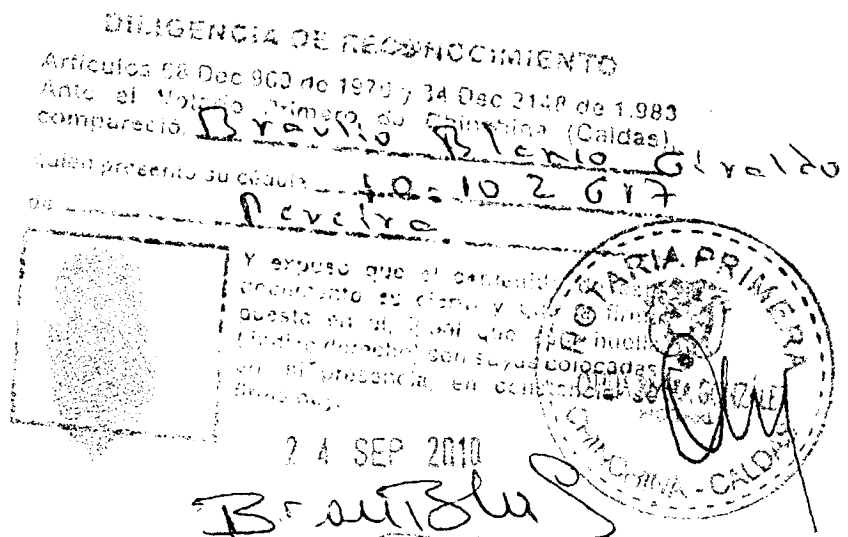 DILIGENCIA DE RECONOCIMIENTO
Artículos 68 Dec 960 de 1970 y 34 Dec 2148 de 1.983
Ante el Notario Primero de Chinchina (Caldas),
compareció, Braulio Blanco Giraldo
quien presentó su cédula 10.102 617
de Pereira
Y expuso que el contenido de
documento es cierto y que la firma
puesta en el que huella
(indice derecho) son suyas colocadas
en mi presencia, en constancia se
firma hoy.
24 SEP 2010
BrauBlaG
NOTARIA PRIMERA
CHINCHINA - CALDAS